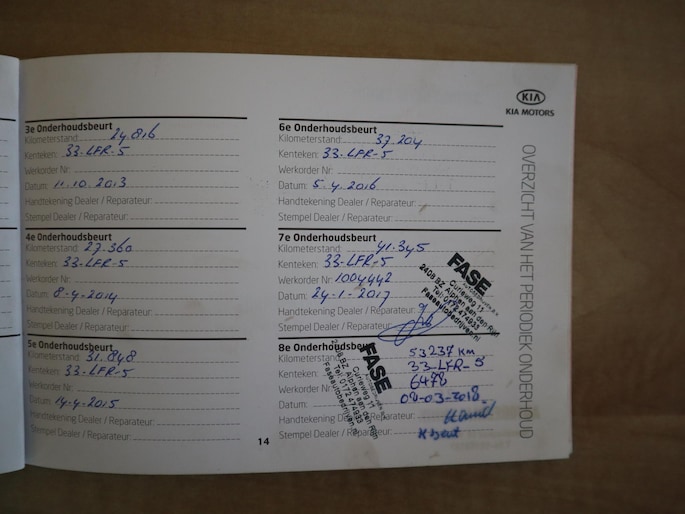 KIA
KIA MOTORS
OVERZICHT VAN HET PERIODIEK ONDERHOUD
3e Onderhoudsbeurt
Kilometerstand: 24.816
Kenteken: 33-LFR-5
Werkorder Nr:
Datum: 11.10.2013
Handtekening Dealer / Reparateur:
Stempel Dealer / Reparateur:
4e Onderhoudsbeurt
Kilometerstand: 27.360
Kenteken: 33-LFR-5
Werkorder Nr:
Datum: 8-4-2014
Handtekening Dealer / Reparateur:
Stempel Dealer / Reparateur:
5e Onderhoudsbeurt
Kilometerstand: 31.848
Kenteken: 33-LFR-5
Werkorder Nr:
Datum: 14-4-2015
Handtekening Dealer / Reparateur:
Stempel Dealer / Reparateur:
6e Onderhoudsbeurt
Kilometerstand: 37.204
Kenteken: 33-LFR-5
Werkorder Nr:
Datum: 5-4-2016
Handtekening Dealer / Reparateur:
Stempel Dealer / Reparateur:
7e Onderhoudsbeurt
Kilometerstand: 41.345
Kenteken: 33-LFR-5
Werkorder Nr: 1004442
Datum: 24-1-2017
Handtekening Dealer / Reparateur:
Stempel Dealer / Reparateur:
FASE
Curieweg 11
2408 BZ Alphen aan den Rijn
Tel: 0172 474933
Faseautobedrijven.nl
8e Onderhoudsbeurt
Kilometerstand: 53237 KM
Kenteken: 33-LFR-5
Werkorder Nr: 6478
Datum: 02-03-2018
Handtekening Dealer / Reparateur:
Stempel Dealer / Reparateur:
FASE
Curieweg 11
2408 BZ Alphen aan den Rijn
Tel: 0172 474933
Faseautobedrijven.nl
14